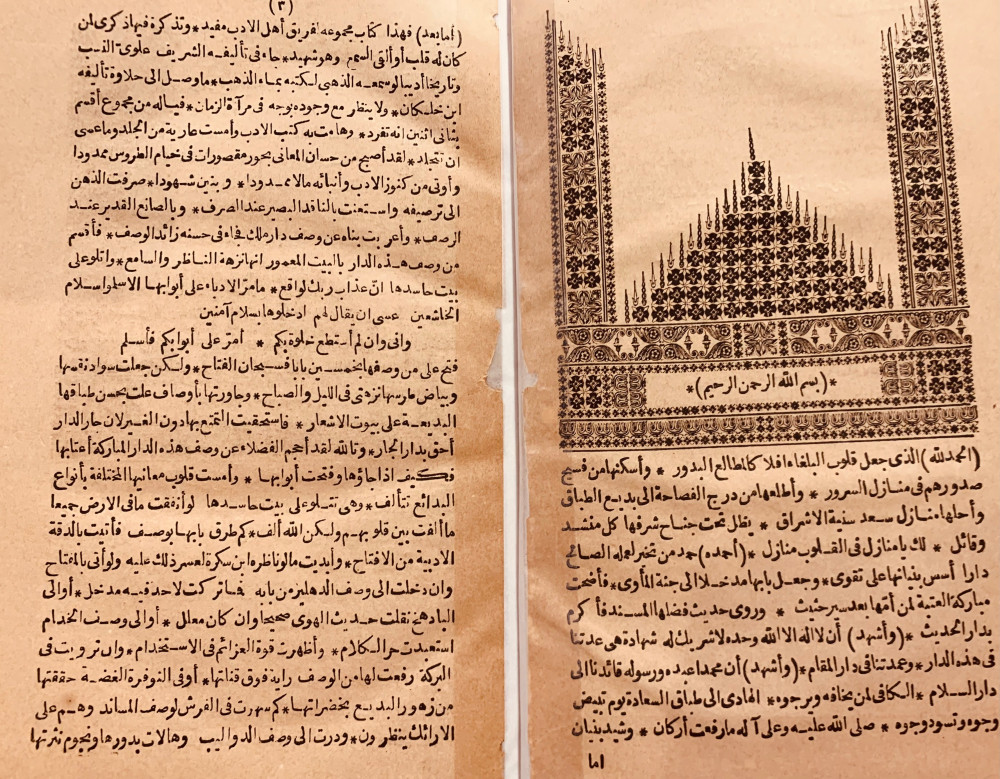 *(بسم الله الرحمن الرحيم)*
(الحمد لله) الذى جعل قلوب البلغاء افلاكا لمطالع البدور * وأسكنها من فسيح
صدورهم فى منازل السرور * وأطلعها من درج الفصاحة الى بديع الطباق
وأحلها منازل سعد سنية الاشراق * يظل تحت جناح شرفها كل منشد
وقائل * لك يا منازل فى القلوب منازل * (أحمده) حمد من تخير لعمله الصالح
دارا أسس بنيانها على تقوى * وجعل بابها مدخلا الى جنة المأوى * فأضحت
مباركة العتبة لمن أمها بعد سير حثيث * وروى حديث فضلها المسند فأكرم
بدار الحديث * (وأشهد) أن لا اله الا الله وحده لا شريك له شهادة هى عدتنا
فى هذه الدار * وعمدتنا فى دار المقام * (وأشهد) أن محمدا عبده ورسوله قائدنا الى
دار السلام * الكافى لمن يخافه ويرجوه * الهادى الى طباق السعادة يوم تبيض
وجوه وتسود وجوه * صلى الله عليه وعلى آله ما رفعت أركان * وشيد بنيان
اما
(٣)
(أما بعد) فهذا كتاب مجموعه لفريق أهل الادب مفيد * وتذكرة فيها ذكرى لمن
كان له قلب أو ألقى السمع وهو شهيد * جاء فى تأليفه الشريف علوى النسب
وتاريخا أدبيا لو سمعه الذهبى لكتبه بماء الذهب * ما وصل الى حلاوة تأليفه
ابن خلكان * ولا ينظر مع وجوده بوجه فى مرآة الزمان * فياله من مجموع أقسم
بثانى اثنين انه تفرد * وهامت به كتب الادب وأمست عارية من الجلد وما عسى
ان تتجلد * لقد أصبح من حسان المعانى بحور مقصورات فى خيام الطروس ممدودا
وأوتى من كنوز الادب وأنبائه مالا ممدودا * وبنين شهودا * صرفت الذهن
الى ترصيفه واستعنت بالناقد البصير عند الصرف * وبالصانع القدير عند
الرصف * وأعربت بناه عن وصف دار ملك فجاء فى حسنه زائد الوصف * فأقسم
من وصف هذه الدار بالبيت المعمور انها نزهة الناظر والسامع * واتلو على
بيت حاسدها ان عذاب ربك لواقع * ما مر الادباء على أبوابها الا سلموا سلام
الخاشعين عسى ان يقال لهم ادخلوها بسلام آمنين
وانى وان لم أستطع خلوة بكم * أمر على أبوابكم فأسلم
فتح على من وصفها بخمسين بابا فسبحان الفتاح * ولكن جعلت سواد نقسها
وبياض طرسها نزهتى فى الليل والصباح * وجاورتها بأوصاف علت بحسن طباقها
البديعة على بيوت الاشعار * فاستحقيت التمتع بها دون الغير لان جار الدار
أحق بدار الجار * وتالله لقد أحجم الفضلاء عن وصف هذه الدار المباركة أعتابها
فكيف اذا جاؤها وفتحت أبوابها * وأمست قلوب معانيها المختلفة بأنواع
البدائع تتألف * وهى تتلو على بيت حاسدها لو أنفقت ما فى الارض جميعا
ما ألفت بين قلوبهم ولكن الله ألف * كم طرق بابها بوصف فأتيت بالدقة
الادبية من الافتاح * وأبديت ما لو ناظره ابن سكرة لعسر ذلك عليه ولو أتى بالمفتاح
وان دخلت الى وصف الدهليز من بابه فما تركت لاحد فيه مدخل * أو الى
البادهنج نقلت حديث الهوى صحيحا وان كان معلل * أو الى وصف الخدام
استعبدت حر الكلام * وأظهرت قوة العزائم فى الاستخدام * وان ترويت فى
البركة رفعت لها من الوصف راية فوق قناتها * أو فى النوفرة الفضة حققتها
من زهور البديع بخضراتها * كم سهرت فى الفرش لوصف المساند وهم على
الارائك ينظرون * ودرت الى وصف الدواليب وهالات بدورها ونجوم نثرتها